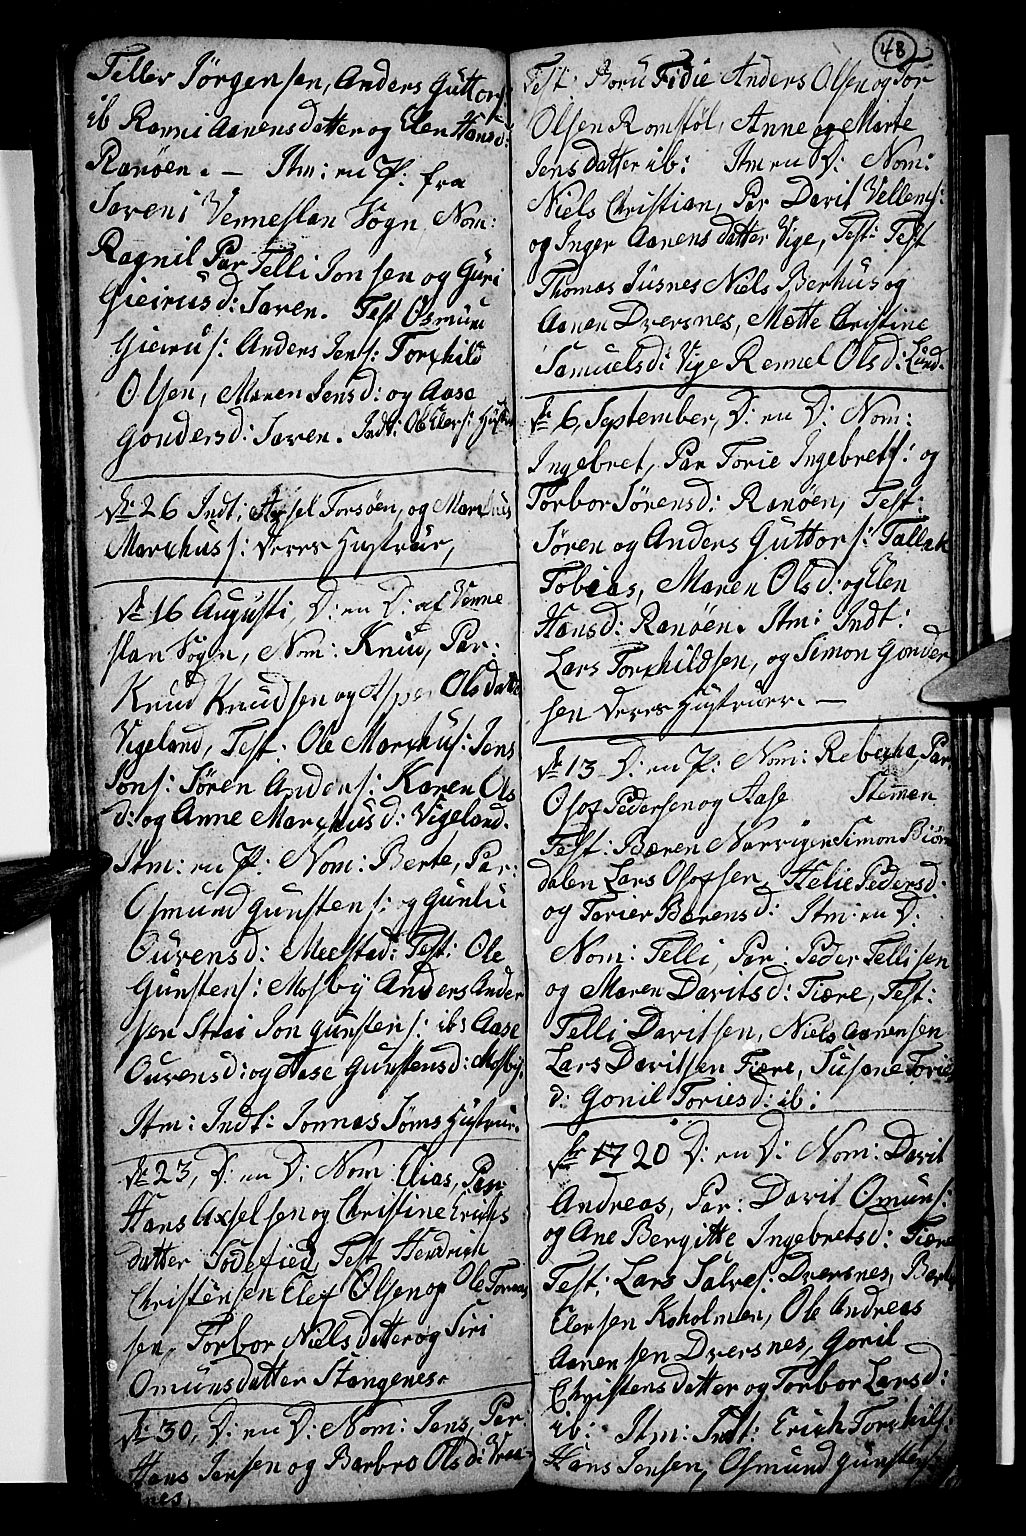 Teller Jörgensen, Anders Guttors:
ib Ranni Aanensdatter og Elen Hansd:
Ranöen. — Itm: en P: fra
Jaren i Venneslan Sogn, Nom:
Ragnil Par Telli Jonsen og Guri
Gieirusd: Jaren. Test Osmun
Gieirus: Anders Jens: Torkild
Olsen, Maren Jensd: og Aase
Gondersd: Jaren. Indt: Ob Elers: Hustr
26 Indt: Axsel Torsöen, og Marchus
Marchuss: deres Hustruer,
16 Augusti, D: en D: af Venne
slan Sogn, Nom: Knud, Par:
Knud Knudsen og Olsdatt
Vigeland, Test: Ole Marchus: Jens
Jons: Sören Anders: Karen Ols
d: og Anne Marchusd: Vigeland.
Itm: en P: Nom: Berte, Par:
Osmund Gunstens: og Gunlu
Ourensd: Meestad: Test: Ole
Gunstens: Mosby Anders Ander
sen Strai Jon Gunstens: ibs Aase
Ourensd: og Aase Gunstensd: Mosby.
Itm: Indt: Jonnas Jöms Hustrue.
23, D: en D: Nom: Elias, Par:
Hans Axselsen og Christine Erichs
datter Södefied, Test Hendrich
Christensen Elef Olsen og Ole Torens
sen, Torbor Nielsdatter og Siri
Omunsdatter Stangenes.
30, D: en D: Nom: Jens, Par:
Hans Jensen og Barbro Olsd: Vraa-
nes
48
Test: Boru Fidie Anders Olsen og Tor
Olsen Romstöl, Anne og Marte
Jensdatter ib: Itm en D: Nom:
Niels Christian, Par Davit Vellems:
og Inger Aanensdatter Vige, Test: Test
Thomas Jusnes Niels Berhus og
Aanen Dversnes, Mette Cristine
Samuelsd: Vige Rennel Olsd: Lund.
6, September, D: en D: Nom:
Ingebret, Par Torie Ingebrets: og
Torbor Sörensd: Ranöen, Test:
Sören og Anders Guttors: Tallak
Tobias, Maren Olsd: og Elen
Hansd: Ranöen. Itm: Indt:
Lars Torkildsen, og Simon Gonder
sen deres Hustruer. —
13 D: en P: Nom: Rebecha, Par
Osof Pedersen og Aase Stemen
Test: Bæren Narvigen Simon Biörn
dalen Lars Osofsen, Helie Pedersd:
og Torier Bærensd: Itm: en D:
Nom: Telli, Par: Peder Tellisen
og Maren Davitsd: Tiære, Test:
Telli Davitsen, Niels Aanensen
Lars Davitsen Tiære, Susane Tories
d: Gonil Toriesd: ib:
20 D: en D: Nom: Davit
Andreas, Par: Davit Omuns:
og Ane Bergitte Ingebretsd: Tiære
Test: Lars Salves: Dversnes, Berte
Elersen Kaholmen, Ole Andreas
Aanensen Dversnes, Goril
Christensdatter og Torbor Larsd:
ib: Itm: Indt: Erich Torkils:
Hans Jensen, Osmund Gunstens: